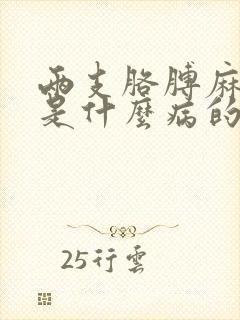 兩支胳膊麻
是什麼病的
25行雲